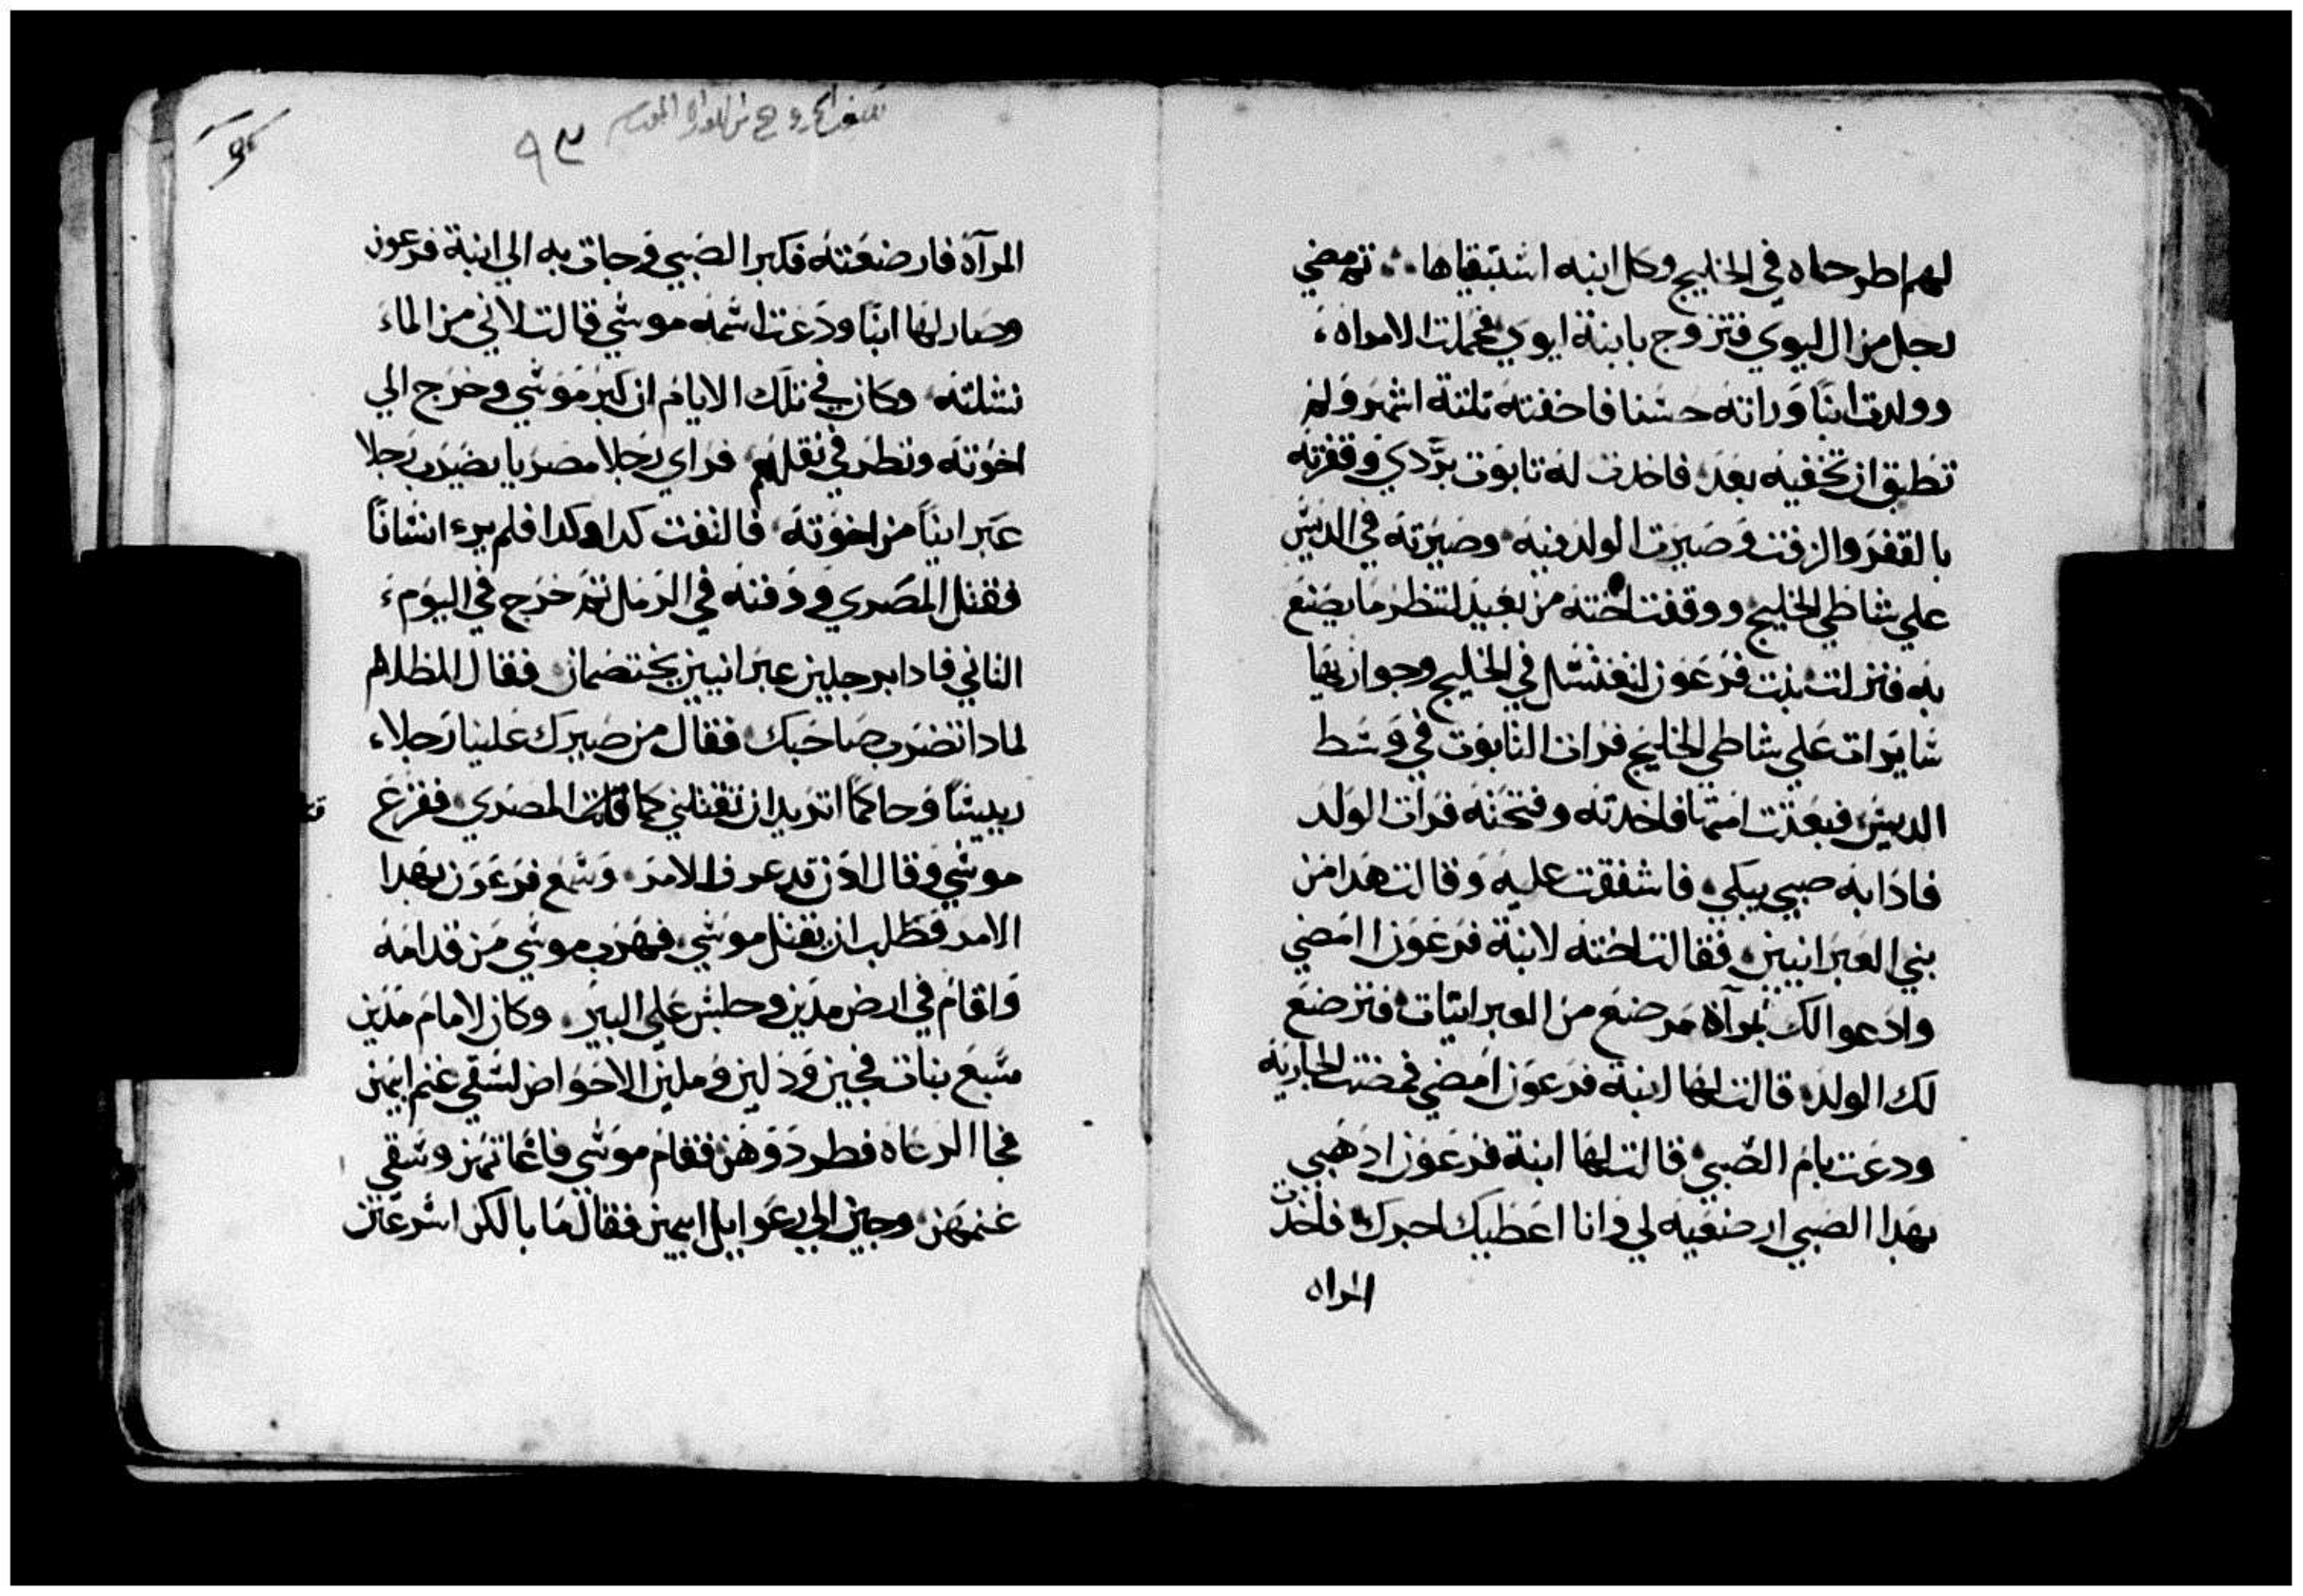 لهم اطرحماه في الخليج وكل ابنه اشتبقياها ثم مضي
رجل من ال ليوي فتزوج بابنة ليوي فحملت الامراه
وولدت ابنًا وراته حسنا فاخفته تلتة اشهر ولم
تطيق ان تخفيه بعد فاخدت له تابوت بردي وقفرته
بالقفر والزفت وصيرت الولد فيه وصيرته في الديس
علي شاطي الخليج ووقفت اخته من بعيد لتنظر ما يصنع
به فنزلت بنت فرعون لتغتسل في الخليج وجواريها
سايرات علي شاطي الخليج فرات التابوت في وسط
الديس فبعتت امتها فاخدته وفتحته فرات الولد
فاذا به صبي يبكي فاشفقت عليه وقالت هدا من
بني العبرانيين فقالت اخته لابنة فرعون امضي
وادعوا لك امرآة مرضع من العبرانيات فترضع
لك الولد قالت لها ابنة فرعون امضي فمضت الجاريه
ودعت بام الصبي قالت لها ابنة فرعون اذهبي
بهدا الصبي ارضعيه لي وانا اعطيك اجرك فاخدت
المراه
٩٣
المرآة فارضعته فكبر الصبي وجات به الي ابنة فرعون
وصار لها ابنًا ودعت اسمه موسي قالت لاني من الماء
نشلته وكان في تلك الايام ان كبر موسي وخرج الي
اخوته ونظر في ثقلهم فراي رجلا مصريا يضرب رجلا
عبرانيًا من اخوته فالتفت كدا وكدا فلم يرء انسانًا
فقتل المصري ودفنه في الرمل ثم خرج في اليوم
التاني فادا برجلين عبرانيين يختصمان فقال للظالم
لمادا تضرب صاحبك فقال من صيرك علينا رجلاء
رييسًا وحاكمًا اتريد ان تقتلني كما قتلت المصري ففزع
موسي وقال اذن قد عرف الامر وسمع فرعون بهدا
الامر فطلب ان يقتل موسي فهرب موسي من قدامه
واقام في ارض مدين وجلس علي البير وكان لامام مدين
سبع بنات فجين ودلين وملين الاحواض لسقي غنم ابيهن
فجا الرعاه فطردوهن فقام موسي فاغاتهن وسقي
غنمهن وجين الي رعوابيل ابيهن فقال ما بالكن اسرعتن